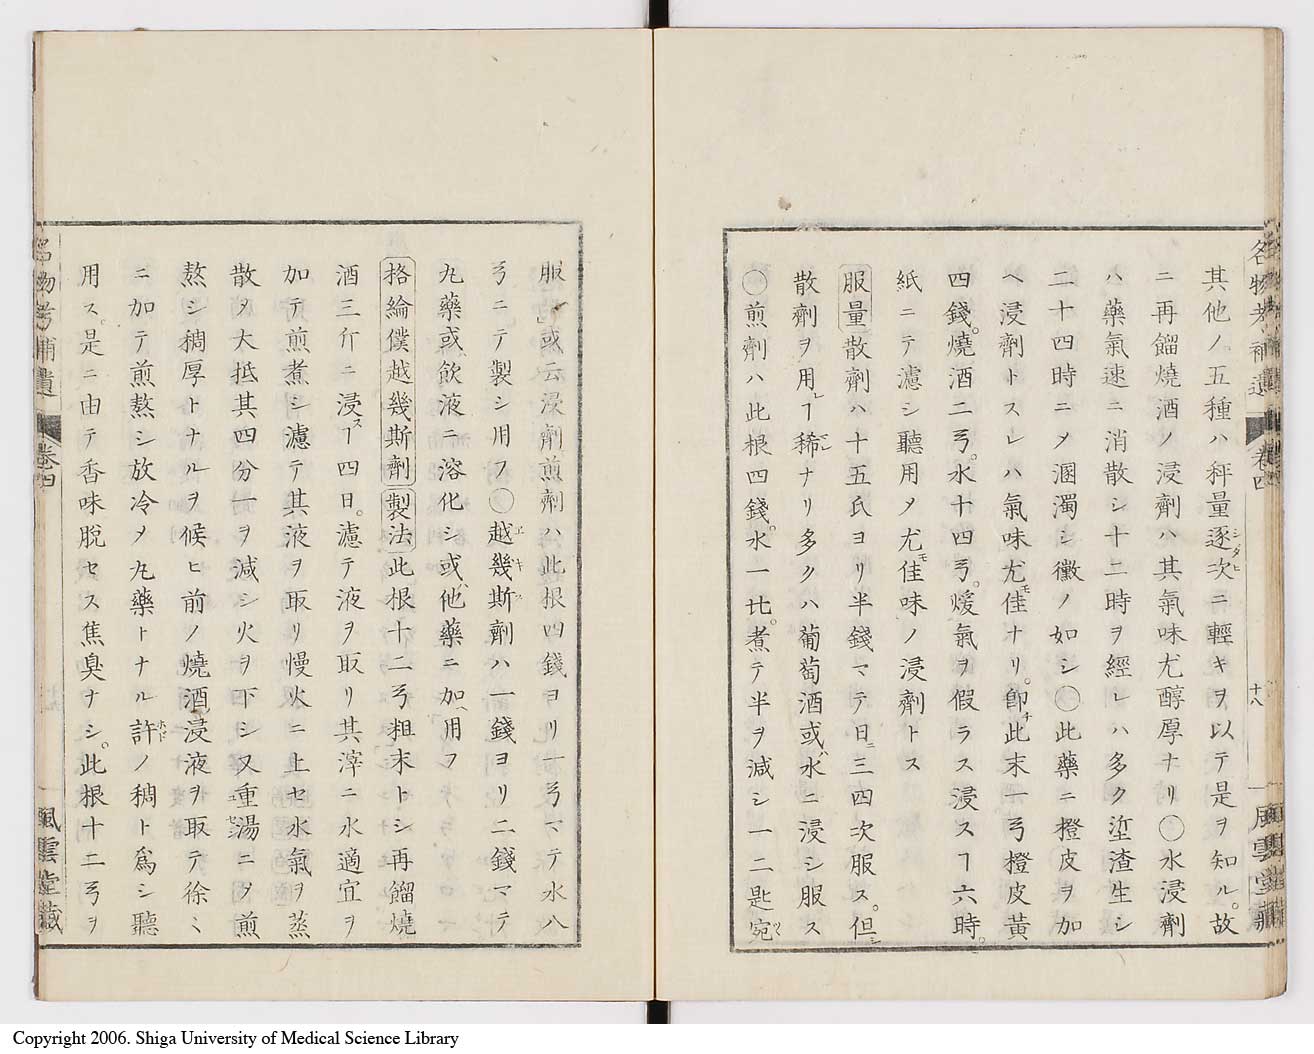 名物考補遺 卷四 十八 風雲堂藏
其他ノ五種ハ秤量逐次ニ輕キヲ以テ是ヲ知ル。故
ニ再餾燒酒ノ浸劑ハ其氣味尤醇厚ナリ〇水浸劑
ハ藥氣速ニ消散シ十二時ヲ經レハ多ク滓渣生シ
二十四時ニ〆溷濁シ黴ノ如シ〇此藥ニ橙皮ヲ加
ヘ浸劑トスレハ氣味尤佳ナリ。卽此末一弓橙皮黃
四錢。燒酒二弓。水十四弓。煖氣ヲ假ラス浸スヿ六時。
紙ニテ濾シ聽用〆尤佳味ノ浸劑トス
服量 散劑ハ十五氏ヨリ半錢マテ日ニ三四次服ス。但シ
散劑ヲ用ルヿ稀ナリ多クハ葡萄酒或ハ水ニ浸シ服ス
〇煎劑ハ此根四錢。水一比。煮テ半ヲ減シ一二匙宛ツヽ
服。或云浸劑煎劑ハ此根四錢ヨリ一弓マテ水八
弓ニテ製シ用フ〇越幾斯劑ハ一錢ヨリ二錢マテ
丸藥或飲液ニ溶化シ或ハ他藥ニ加ヘ用フ
格綸僕越幾斯劑 製法 此根十二弓粗末トシ再餾燒
酒三斤ニ浸スヿ四日。濾テ液ヲ取リ其滓ニ水適宜ヲ
加テ煎煮シ濾テ其液ヲ取リ慢火ニ上セ水氣ヲ蒸
散ヲ大抵其四分一ヲ減シ火ヲ下シ又重湯ニタ煎
熬シ稠厚トナルヲ候ヒ前ノ燒酒浸液ヲ取テ徐ミ
ニ加テ煎熬シ放冷〆丸藥トナル許ノ稠ト爲シ聽
用ス。是ニ由テ香味脫セス焦臭ナシ。此根十二弓ヲ
名物考補遺 卷四 風雲堂藏
Copyright 2006. Shiga University of Medical Science Library